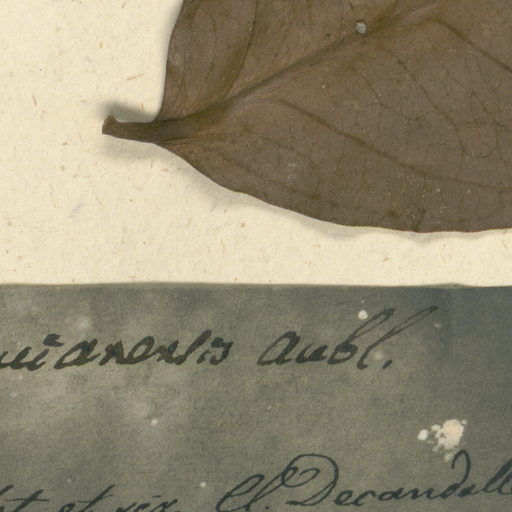 uianensis aubl.
et six Cl. Decandolle